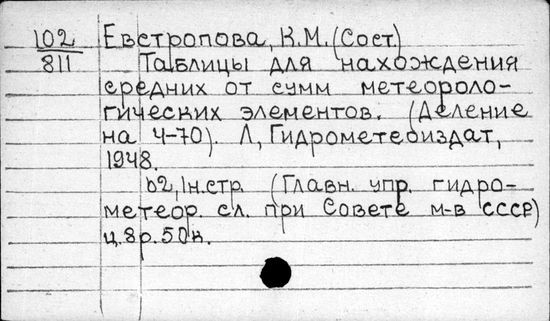 102 Евстропова, К.М. (Сост.)
811 Таблицы для нахождения
средних от сумм метеороло-
гических элементов. (Деление
на 4-70). Л, Гидрометеоиздат,
1948.
62, 1н.стр. (Главн. упр. гидро-
метеор. сл. при Совете м-в СССР)
ц. 8р. 50к.